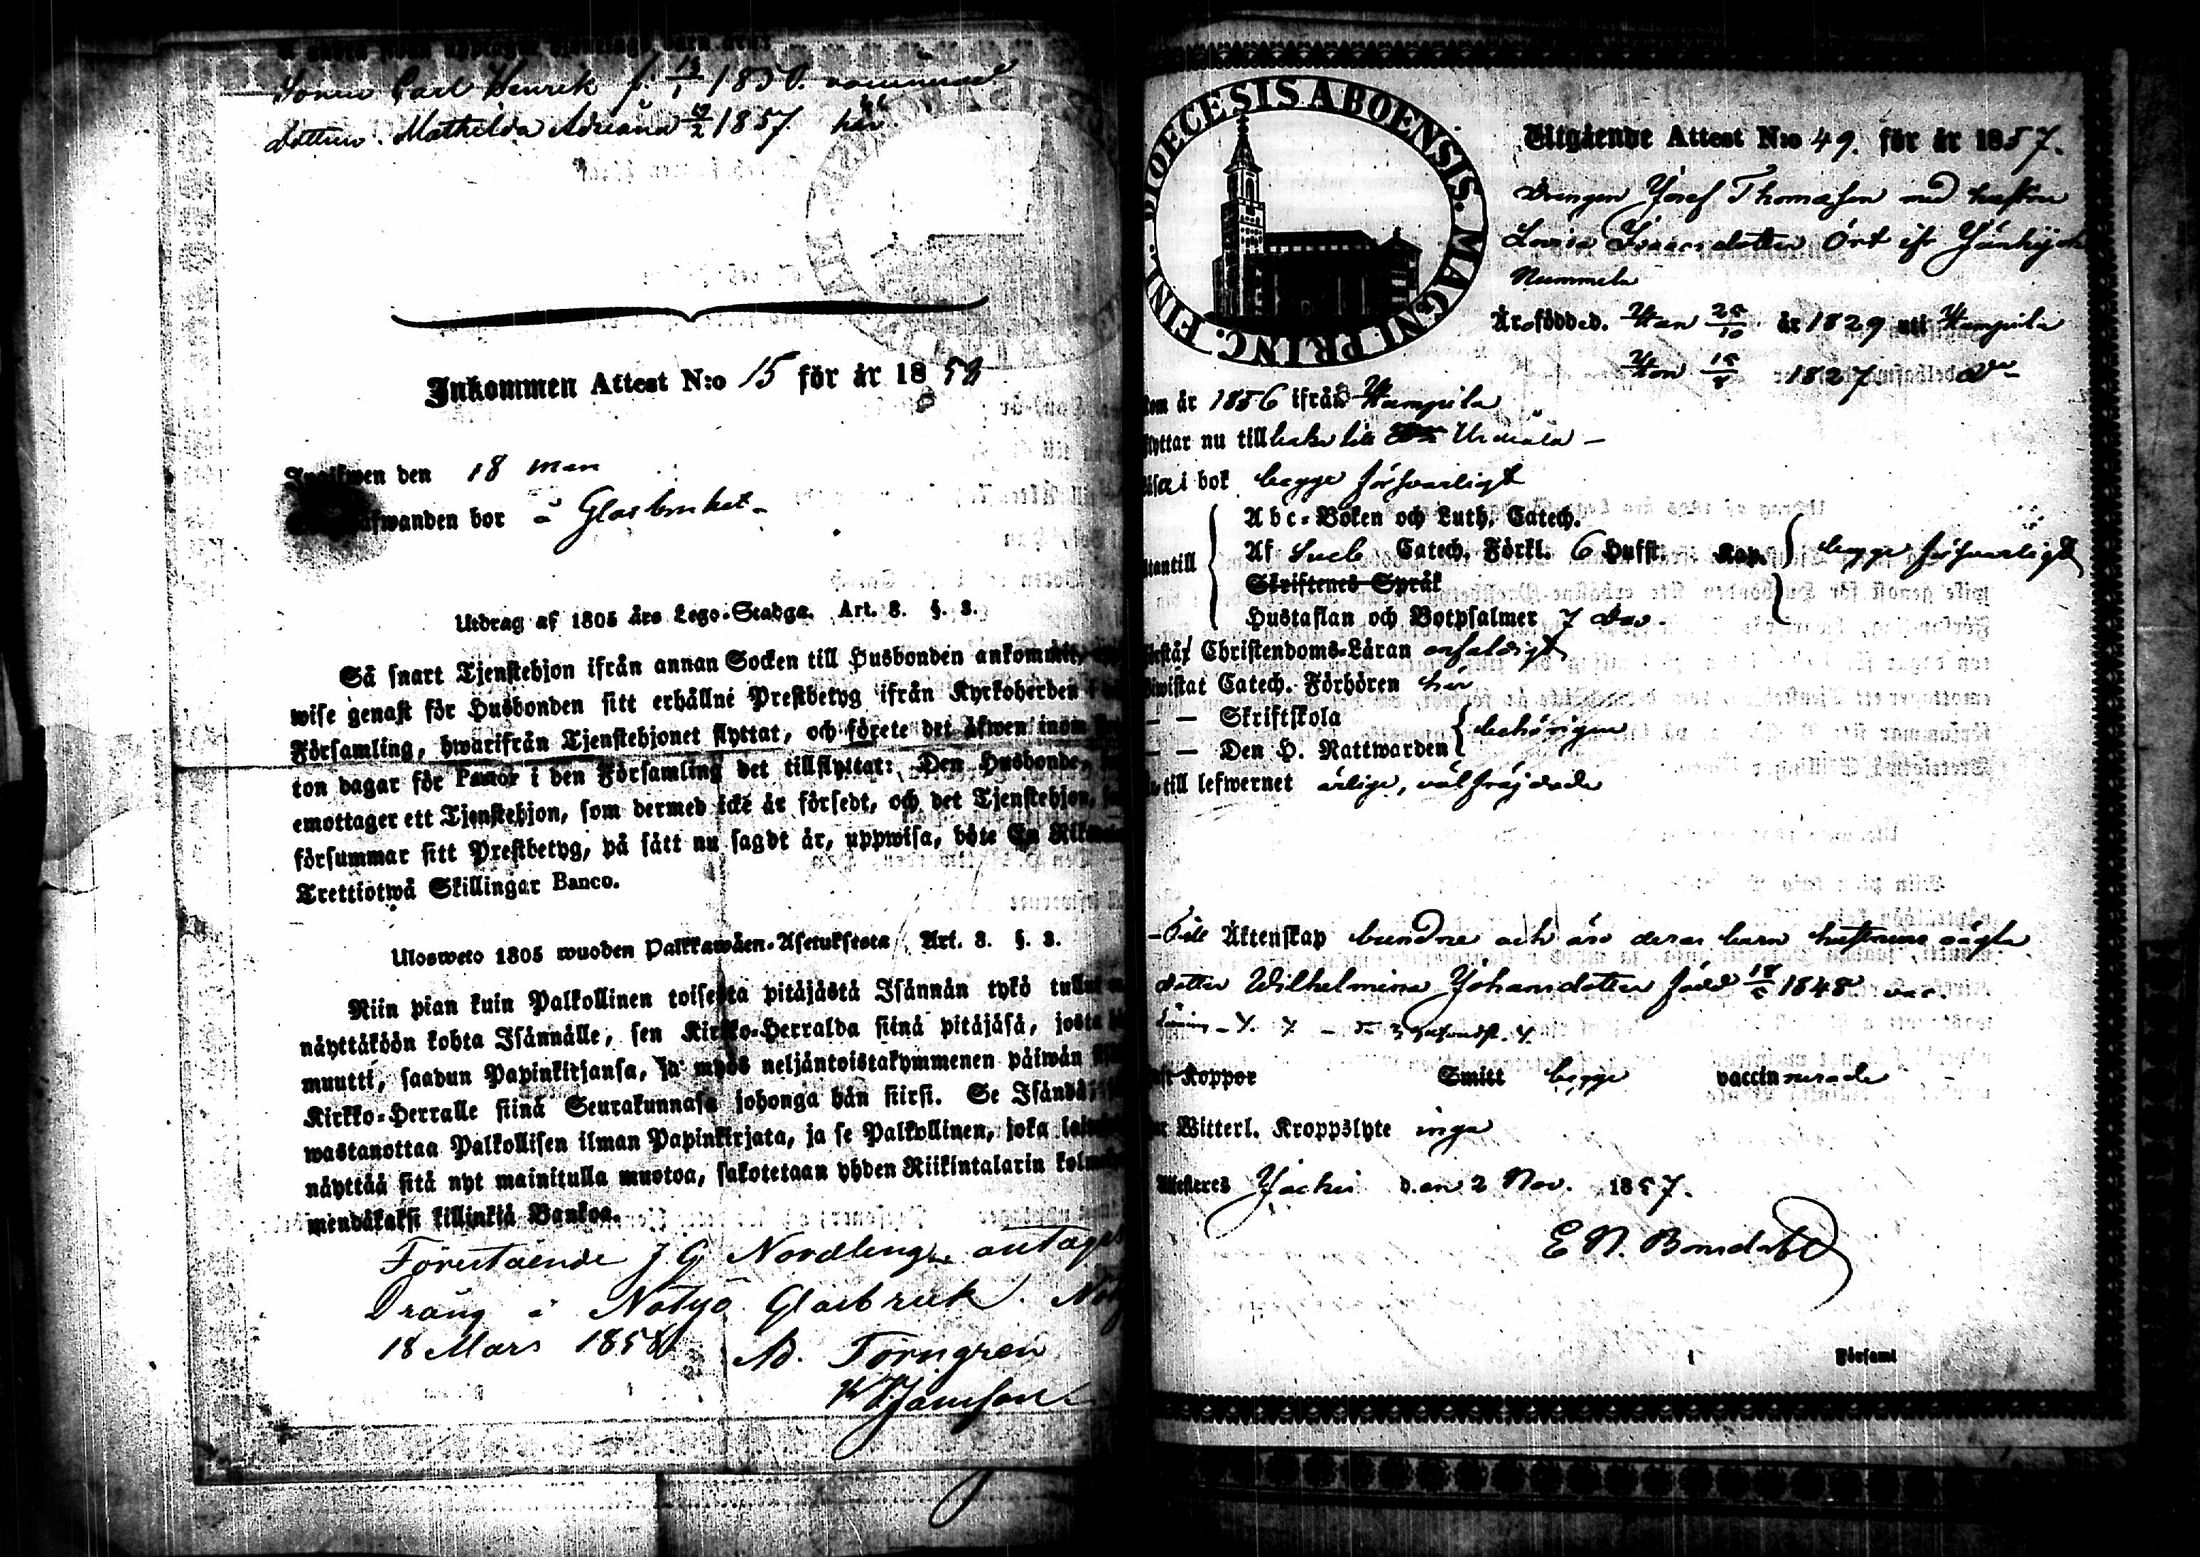 Sonen Carl Henrik f. 13/1 1850. vaccinerad
dottren Mathilda Adriana 19/2 1857. här.
Inkommen Attest N:o 15 för år 1858
den 18 mars
bor å Glasbruket
Utdrag af 1805 års Lego-Stadga. Art. 8. §. 3.
Så snart Tjenstehjon ifrån annan Socken till Husbonden ankommit,
wise genast för Husbonden sitt erhållne Prestbetyg ifrån Kyrkoherden i
Församling, hwarifrån Tjenstehjonet flyttat, och förete det äfwen inom
ton dagar för Pastor i den Församling det tillflyttat: Den Husbonde,
emottager ett Tjenstehjon, som dermed icke är försedt, och det Tjenstehjon,
försummar sitt Prestbetyg, på sätt nu sagdt är, uppwisa, böte En Riks
Trettiotwå Skillingar Banco.
Ulosweto 1805 wuoden Palkkawäen-Asetuksesta Art. 8. §. 3.
Niin pian kuin Palkollinen toisesta pitäjästä Isännän tykö tullut
näyttäköön kohta Isännälle, sen Kirkko-Herralda siinä pitäjäsä, josta
muutti, saadun Papinkirjansa, ja myös neljäntoistakymmenen päiwän
Kirkko-Herralle siinä Seurakunnasa johonga hän siirsi. Se Isändä,
wastanottaa Palkollisen ilman Papinkirjata, ja se Palkollinen, joka
näyttää sitä nyt mainitulla muotoa, sakotetaan yhden Riikintalarin
mendäkaksi killinkiä Bankoa.
Förestående J G Nordling antages
Dräng i Notsjö Glasbruk.
18 Mars 1858 Ad. Törngren
DIOECESIS ABOENSIS. MAGNI PRINC. FINL.
Utgående Attest N:o 49. för år 1857.
Drengen Josef Thomasson med hustru
Lovisa Isaacsdotter Ört ifr
Nummela
Äro födde d. Han 25/10 år 1829 uti Humpila
Hon 15/8 1827 d:o
kom år 1856 ifrån Humpila
flyttar nu tillbaka till Urdiala
i bok begge försvarligt
utantill
Abc-Boken och Luth. Catech.
Af Sueb. Catech. Förkl. 6 Hufst. Kap. begge försvarligt
Skriftenes Språk
Hustaflan och Botpsalmer 7 Dav.
Christendoms-Läran enfaldigt
Biwistat Catech. Förhören här
— — Skriftskola
— — Den H. Nattwarden behörigen
till lefwernet ärlige, välfräjdade
Till Äktenskap bundne och äro deras barn hustruns oägta
dotter Wilhelmina Johansdotter född 18/5 1848 vac.
Koppor Smitt begge vaccinerade
Witterl. Kroppslyte inga
Attesteres Jockis den 2 Nov. 1857.
E N. Bonsdorff
1 Församl